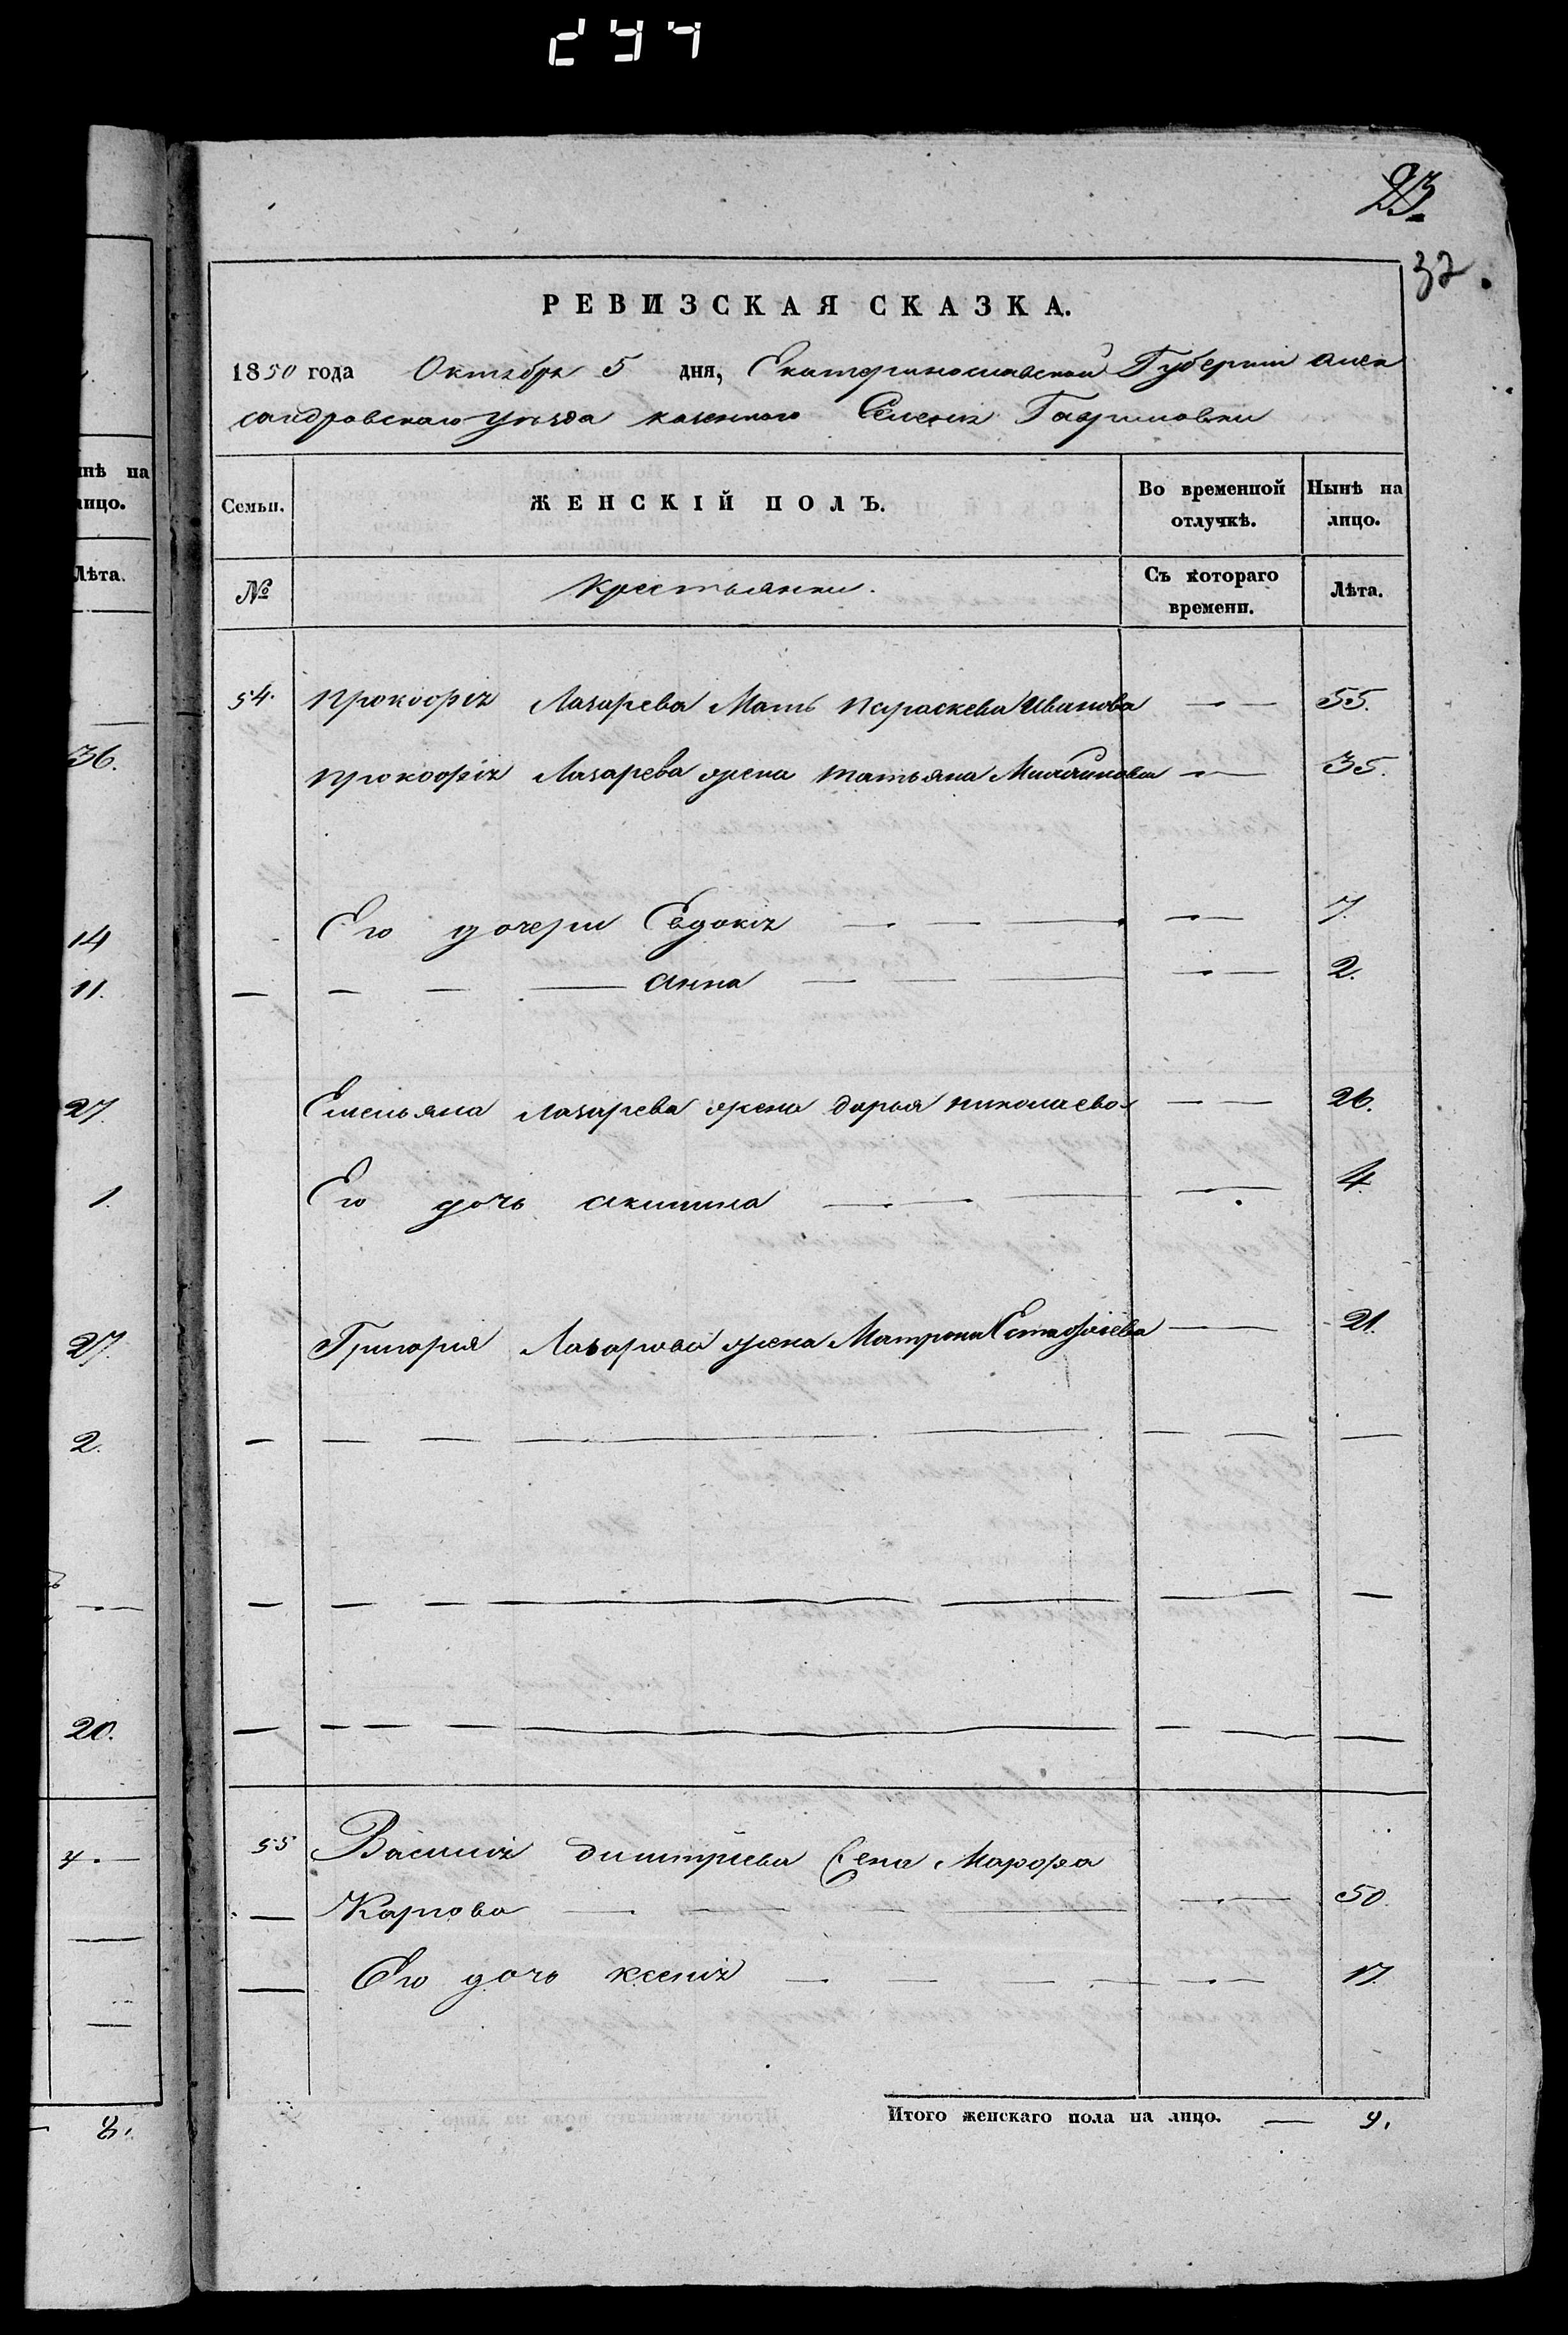 294
23.
32.
РЕВИЗСКАЯ СКАЗКА.
1850 года Октября 5 дня, Екатеринославской Губернии алек
сандровскаго уѣзда казенного Селенія Гавриловки
Семьи. ЖЕНСКІЙ ПОЛЪ. Во временной отлучкѣ. Нынѣ на лицо.
№ Крестьянки. Съ котораго времени. Лѣта.
54. Прокофія Лазарева Мать Параскева Иванова — 55.
Прокофія Лазарева жена татьяна — 35.
Его дочери Евдокія — 7.
— анна — 2.
Емельяна лазарева жена дарья николаева — 26.
Его дочь акилина — 4.
Григорія Лазарева жена Матрона Естафіева — 21.
55 Василия димтріева Жена Марфа
Карпова — 50.
Его дочь ксенія — 17.
Итого женскаго пола на лицо. — 9.
нѣ на
лицо.
Лѣта.
36.
14
11.
27.
1.
27.
2.
20.
8.